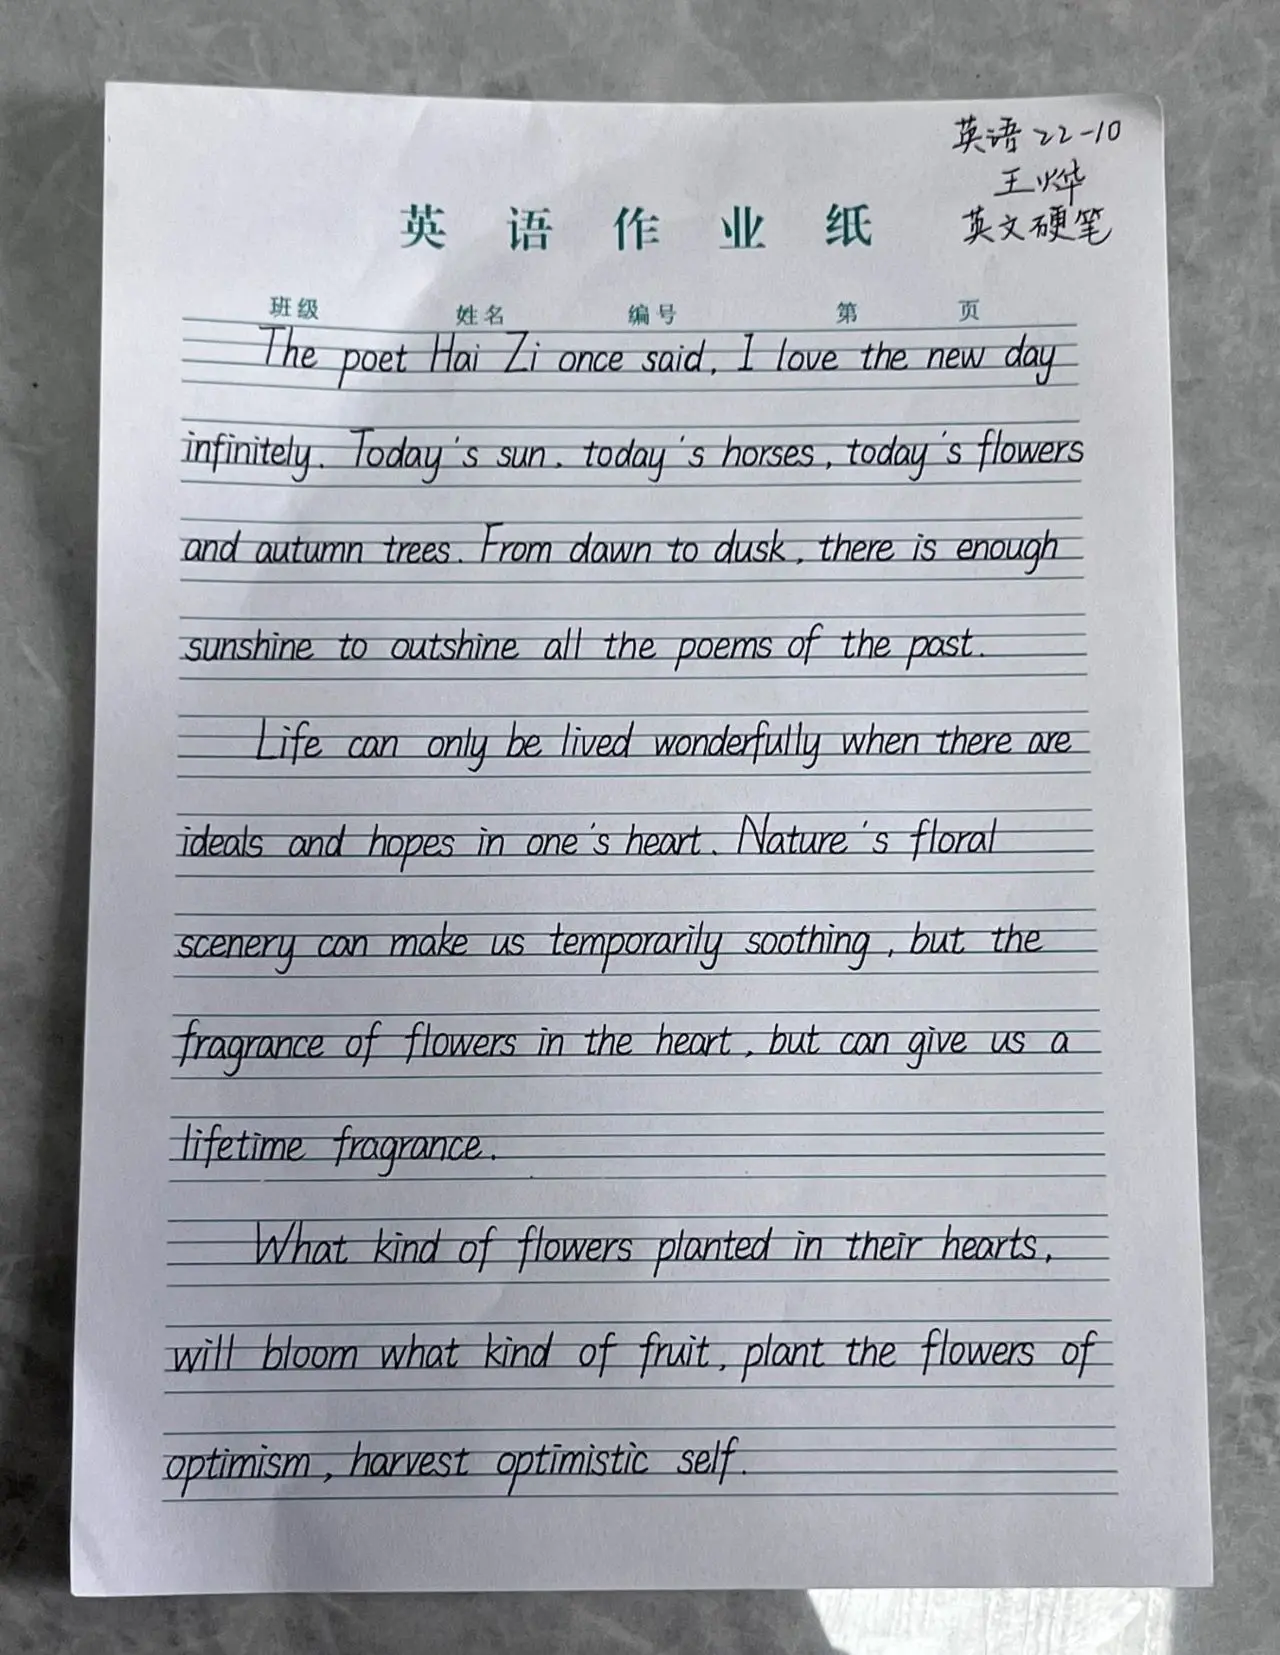 英语22-10
王烨
英文硬笔
英语作业纸
班级 姓名 编号 第 页
The poet Hai Zi once said, I love the new day
infinitely. Today's sun, today's horses, today's flowers
and autumn trees. From dawn to dusk, there is enough
sunshine to outshine all the poems of the past.
Life can only be lived wonderfully when there are
ideals and hopes in one's heart. Nature's floral
scenery can make us temporarily soothing, but the
fragrance of flowers in the heart, but can give us a
lifetime fragrance.
What kind of flowers planted in their hearts,
will bloom what kind of fruit, plant the flowers of
optimism, harvest optimistic self.